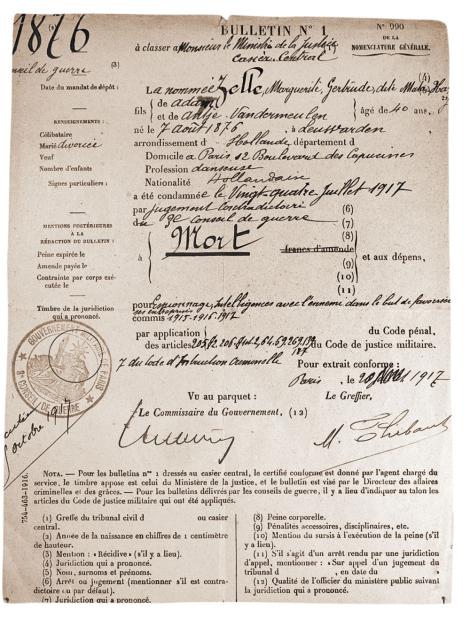 1876
BULLETIN N°
N° 990
DE LA
NOMENCLATURE GÉNÉRALE.
à classer à Monsieur le Ministre de la Justice
Casier Central
conseil de guerre
(3)
Date du mandat de dépôt :
RENSEIGNEMENTS :
Célibataire
Marié divorcée
Veuf
Nombre d'enfants
Signes particuliers :
MENTIONS POSTÉRIEURES
À LA
RÉDACTION DU BULLETIN :
Peine expirée le
Amende payée le
Contrainte par corps exé-
cutée le
Timbre de la juridiction
qui a prononcé.
GOUVERNEMENT MILITAIRE PARIS
CONSEIL DE GUERRE
octobre
(4)
La nommée Zelle, Marguerite, Gertrude, dite Mata Ha
fils de adam
et de antje Vandermeulen âgé de 40 ans,
né le 7 Août 1876 à Leuwarden
arrondissement d' Hollande département d
Domicile à Paris 12 Boulevard des Capucines
Profession danseuse
Nationalité Hollandais
a été condamnée le Vingt-quatre Juillet 1917
par jugement contradictoire (6)
du 3e Conseil de guerre (7)
à Mort
(8)
francs d'amende
(9)
(10)
(11)
et aux dépens,
pour Espionnage, Intelligences avec l'ennemi dans le but de favoriser
ses entreprises
commis 1915-1916-1917
par application du Code pénal,
des articles 205 206 64 69 267 187 du Code de justice militaire.
7 du Code d'Instruction Criminelle
Pour extrait conforme :
Paris, le 1917
Vu au parquet :
Le Greffier,
Le Commissaire du Gouvernement, (12)
M. Thibaut
754-463-1916.
NOTA. — Pour les bulletins n° 1 dressés au casier central, le certifié conforme est donné par l'agent chargé du
service, le timbre apposé est celui du Ministère de la justice, et le bulletin est visé par le Directeur des affaires
criminelles et des grâces. — Pour les bulletins délivrés par les conseils de guerre, il y a lieu d'indiquer au talon les
articles du Code de justice militaire qui ont été appliqués.
(1) Greffe du tribunal civil d ou casier
central.
(2) Année de la naissance en chiffres de 1 centimètre
de hauteur.
(3) Mention : «Récidive» (s'il y a lieu).
(4) Juridiction qui a prononcé.
(5) Nom, surnoms et prénoms.
(6) Arrêt ou jugement (mentionner s'il est contra-
dictoire ou par défaut).
(7) Juridiction qui a prononcé.
(8) Peine corporelle.
(9) Pénalités accessoires, disciplinaires, etc.
(10) Mention du sursis à l'exécution de la peine (s'il
y a lieu).
(11) S'il s'agit d'un arrêt rendu par une juridiction
d'appel, mentionner : «Sur appel d'un jugement du
tribunal d , en date du »
(12) Qualité de l'officier du ministère public suivant
la juridiction qui a prononcé.